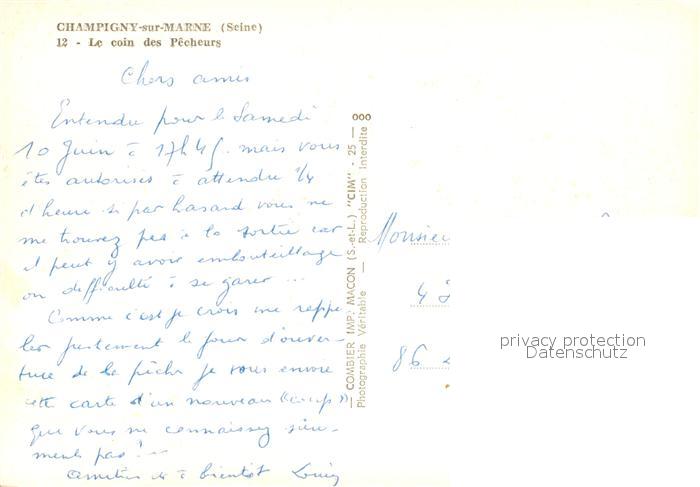 CHAMPIGNY-sur-MARNE (Seine)
12 - Le coin des Pêcheurs
Chers amis
Entendu pour le Samedi
10 Juin à 17h45. mais vous
êtes autorisés à attendre 1/4
d'heure si par hasard vous ne
me trouvez pas à la sortie car
il peut y avoir embouteillage
ou difficulté à se garer ...
Comme c'est je crois me rappe
ler justement le jour d'ouver-
ture de la pêche je vous envoie
cette carte d'un nouveau
que vous ne connaissez sûre-
ment pas! --
Amitiés et à bientôt Louis
COMBIER IMP. MACON (S.-et-L.) "CIM" - 25 - 000
Photographie Véritable - Reproduction Interdite
Monsieu
4
86
privacy protection
Datenschutz